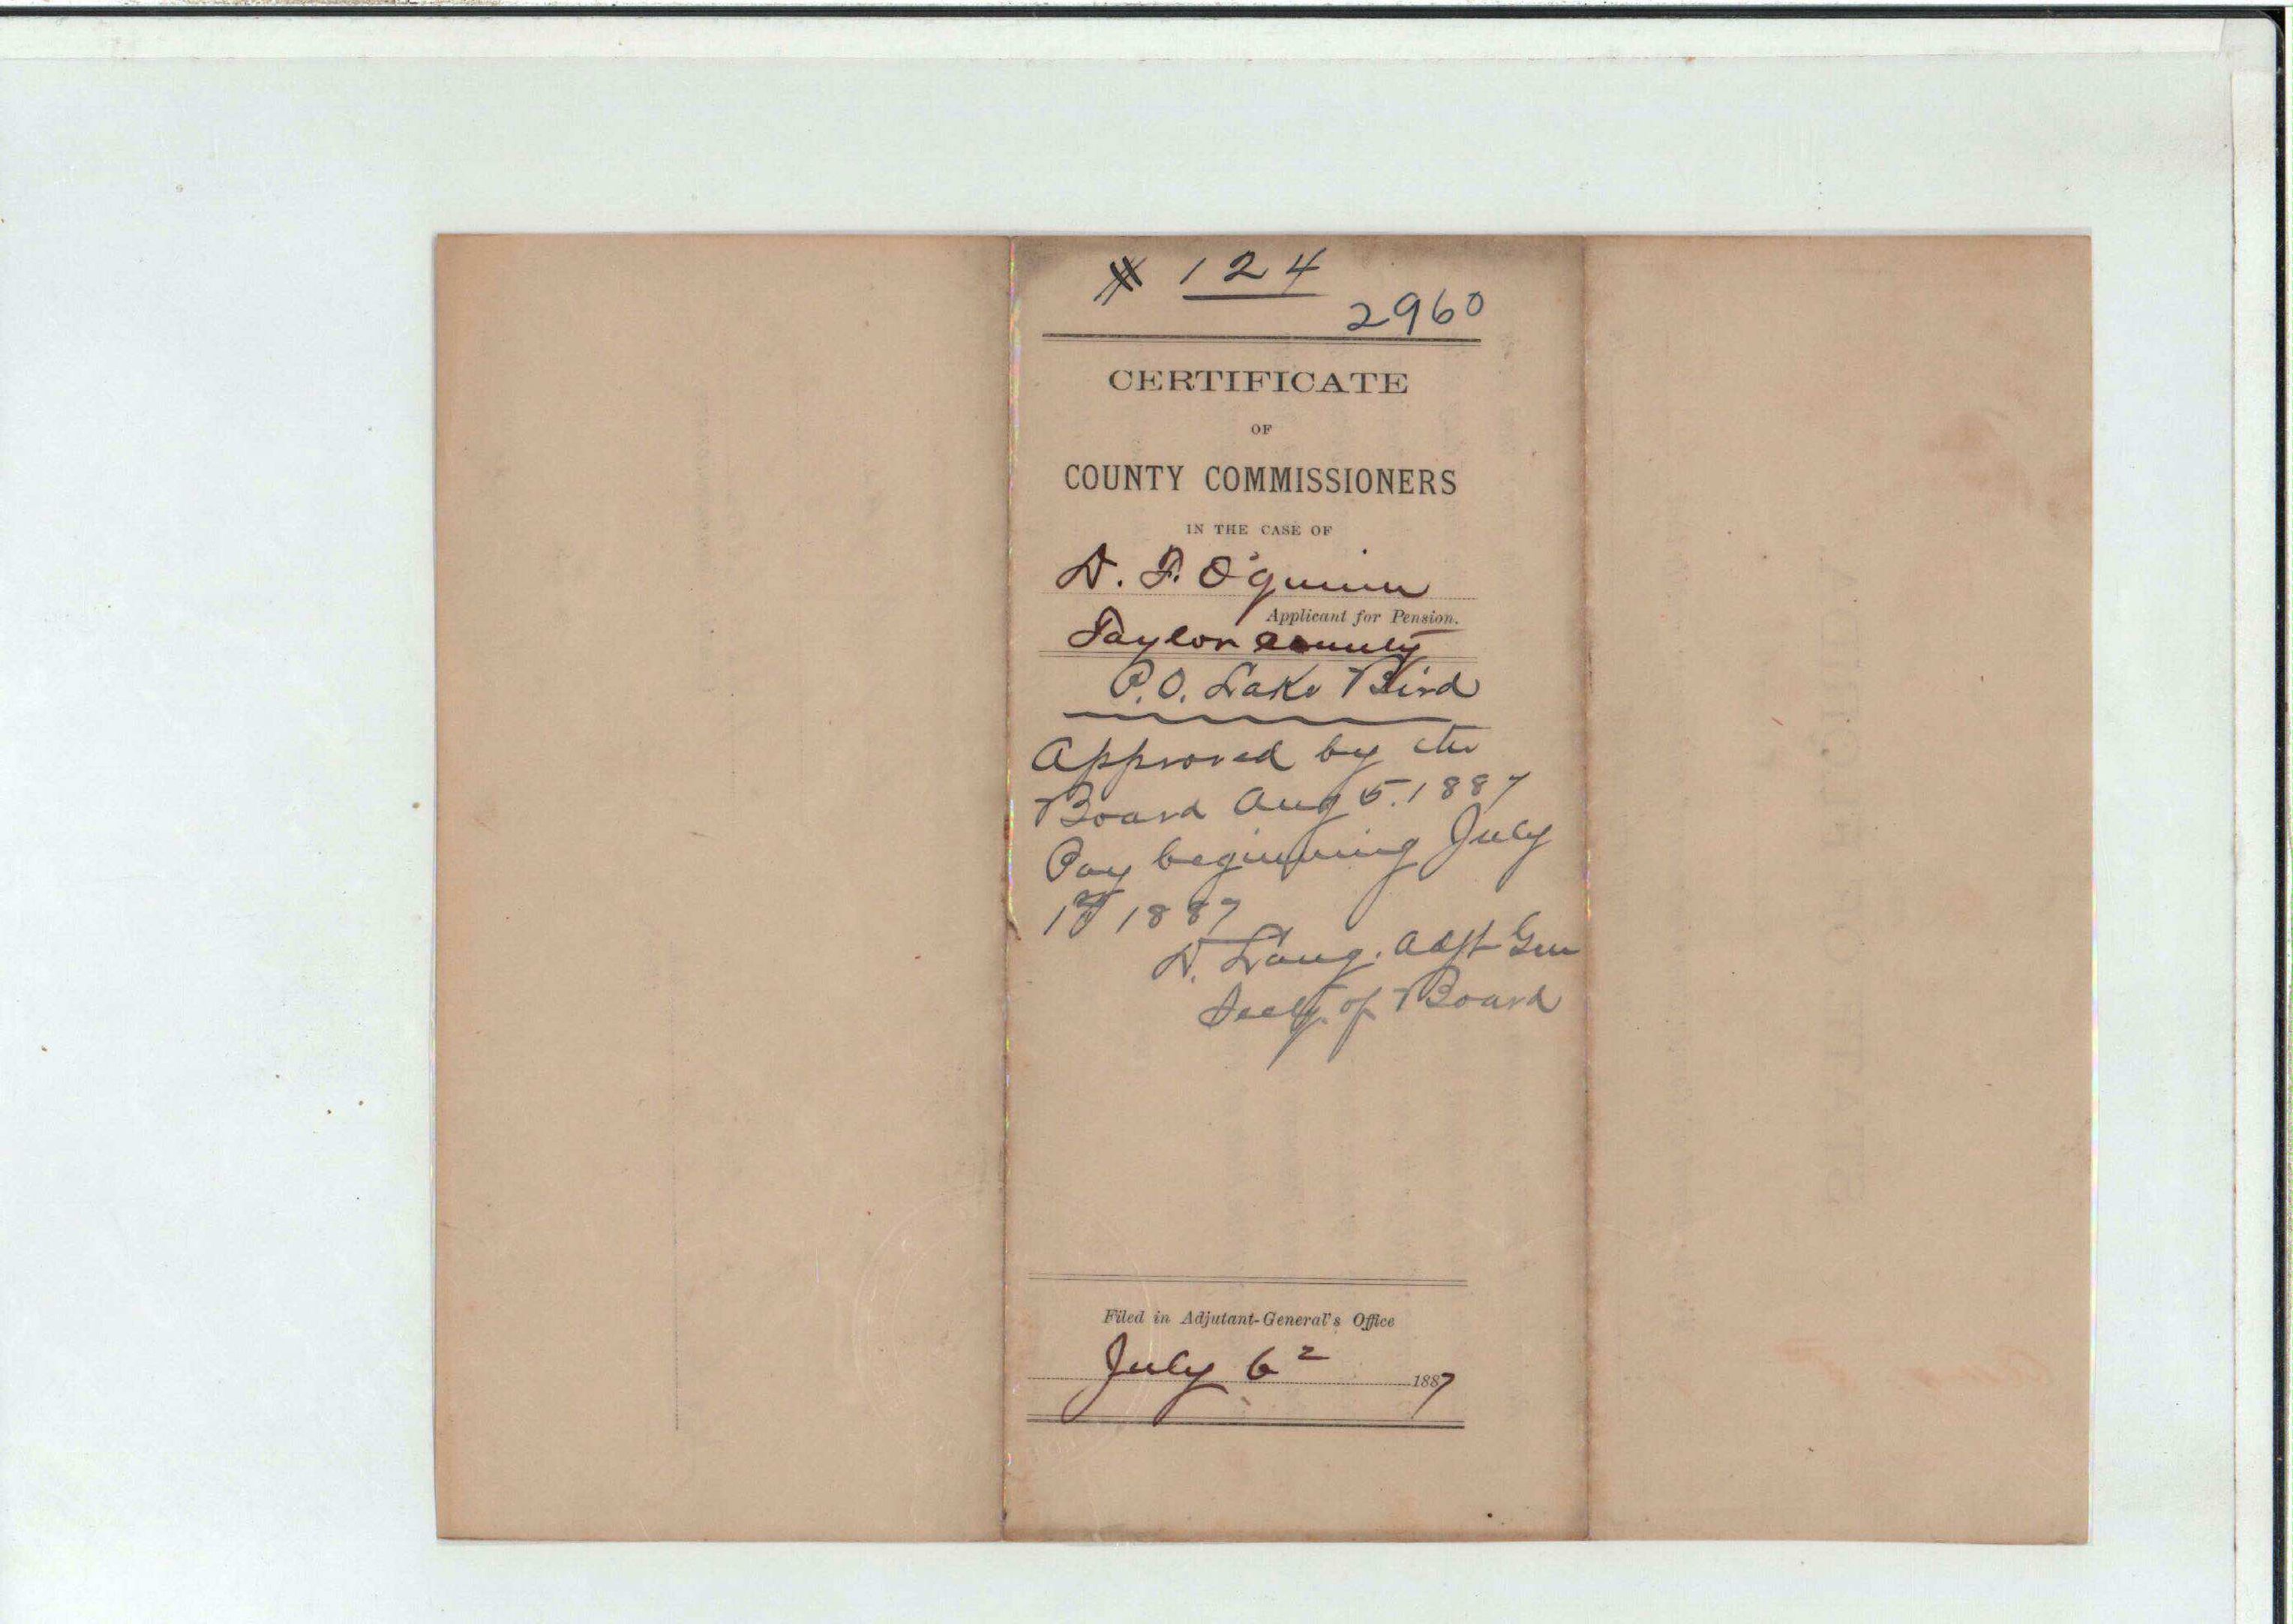 # 124
2960
CERTIFICATE
OF
COUNTY COMMISSIONERS
IN THE CASE OF
D. F. O'quinn
Applicant for Pension.
Taylor county
P.O. Lake Bird
Approved by the
Board Aug 5. 1887
Pay beginning July
1st 1887
D. Lang. Adjt Gen
Secty. of Board
Filed in Adjutant-General's Office
July 6 1887